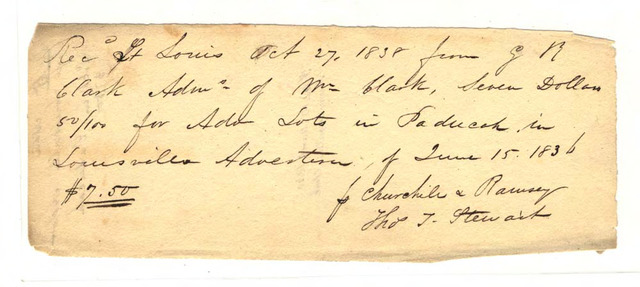 Rec^d St Louis Oct 27, 1838 from G R
Clark Adm^r of Wm Clark, Seven Dollars
50/100 for Adv Lots in Paducah, in
Louisville Advertiser, of June 15 1836
$7.50
p Churchill & Ramsey
Tho^s T. Stewart